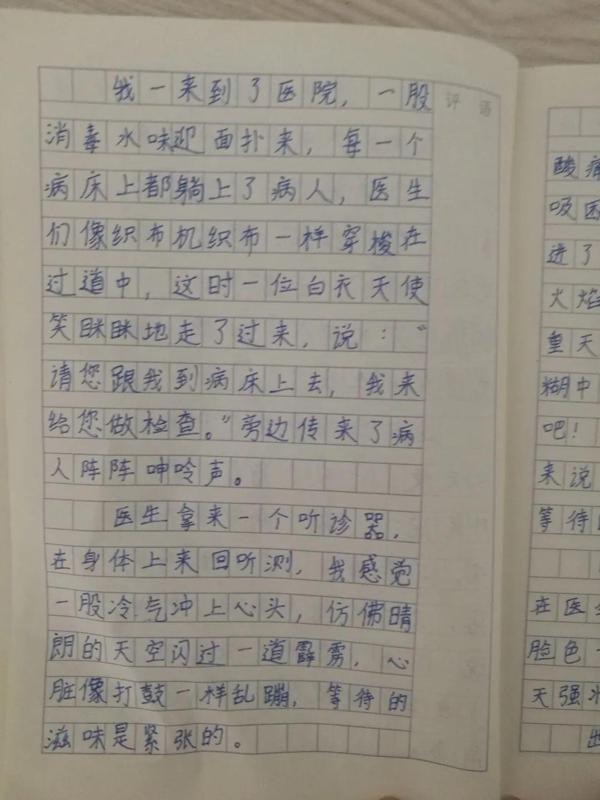 我一来到了医院，一股
消毒水味迎面扑来，每一个
病床上都躺上了病人，医生
们像织布机织布一样穿梭在
过道中，这时一位白衣天使
笑眯眯地走了过来，说：“
请您跟我到病床上去，我来
给您做检查。”旁边传来了病
人阵阵呻吟声。
医生拿来一个听诊器，
在身体上来回听测，我感觉
一股冷气冲上心头，仿佛晴
朗的天空闪过一道霹雳，心
脏像打鼓一样乱蹦，等待的
滋味是紧张的。
评语
酸痛
吸医
进了
火焰
重天
糊中
吧！
来说
等待
在医
脸色
天强
出